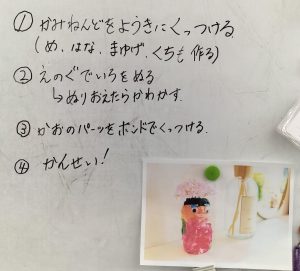 ① かみねんどをようきにくっつける
(め、はな、まゆげ、くちも作る)
② えのぐでいろをぬる
↳ぬりおえたらかわかす.
③ かおのパーツをボンドでくっつける.
④ かんせい!